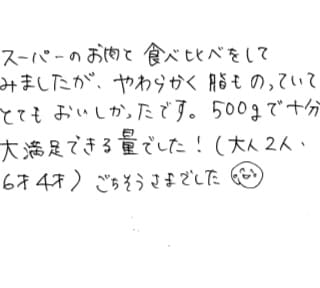 スーパーのお肉と食べ比べをして
みましたが、やわらかく脂ものっていて
とてもおいしかったです。500gで十分
大満足できる量でした！（大人2人・
6才4才）ごちそうさまでした